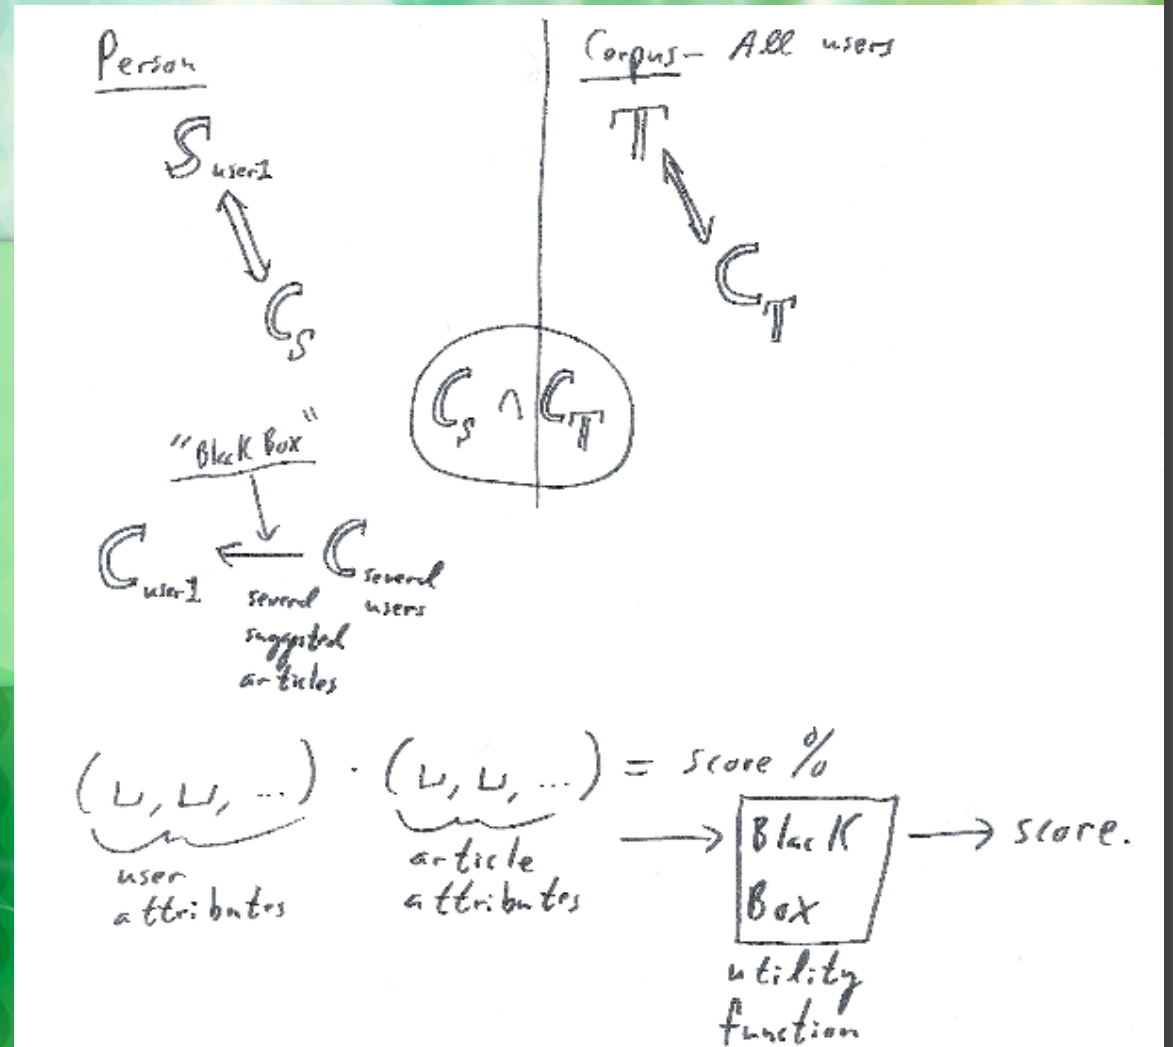 Person
S user1
C S
Corpus - All users
T
C T
C S ∩ C T
"Black Box"
C user1 ← C several users
several
suggested
articles
(⊔, ⊔, ...) · (⊔, ⊔, ...) = score %
user
attributes
article
attributes
Black
Box
→ score.
utility
function